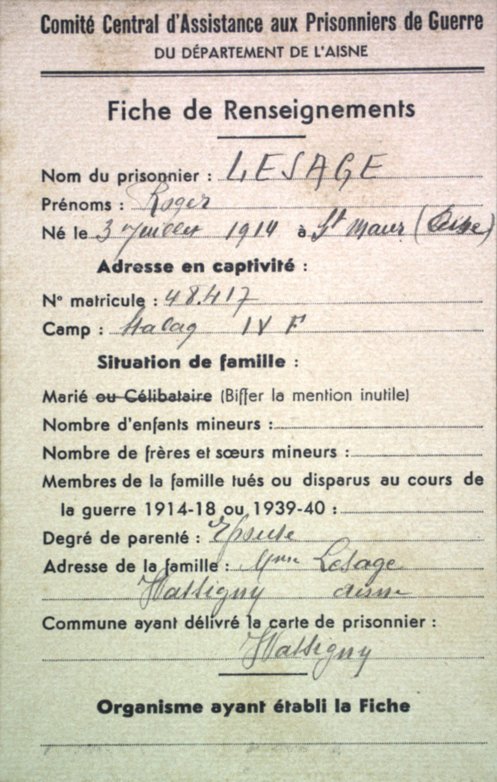 Comité Central d'Assistance aux Prisonniers de Guerre
DU DÉPARTEMENT DE L'AISNE
Fiche de Renseignements
Nom du prisonnier : LESAGE
Prénoms : Roger
Né le 3 Juillet 1914 à St Maur (
Adresse en captivité :
N° matricule : 48.417
Camp : Stalag IV F
Situation de famille :
Marié ou Célibataire (Biffer la mention inutile)
Nombre d'enfants mineurs :
Nombre de frères et sœurs mineurs :
Membres de la famille tués ou disparus au cours de
la guerre 1914-18 ou 1939-40 :
Degré de parenté : Epouse
Adresse de la famille : Mme Lesage
Wassigny Aisne
Commune ayant délivré la carte de prisonnier :
Wassigny
Organisme ayant établi la Fiche